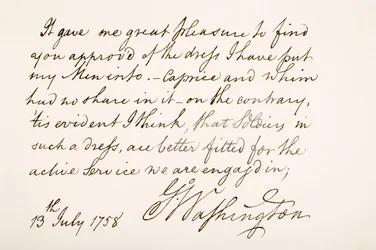 It gave me great pleasure to find
you approv'd of the dress I have put
my Men into. – Caprice and whim
had no share in it – on the contrary,
'tis evident I think, that Soldiers in
such a dress, are better fitted for the
active service we are engag'd in;
13th July 1758 G. Washington